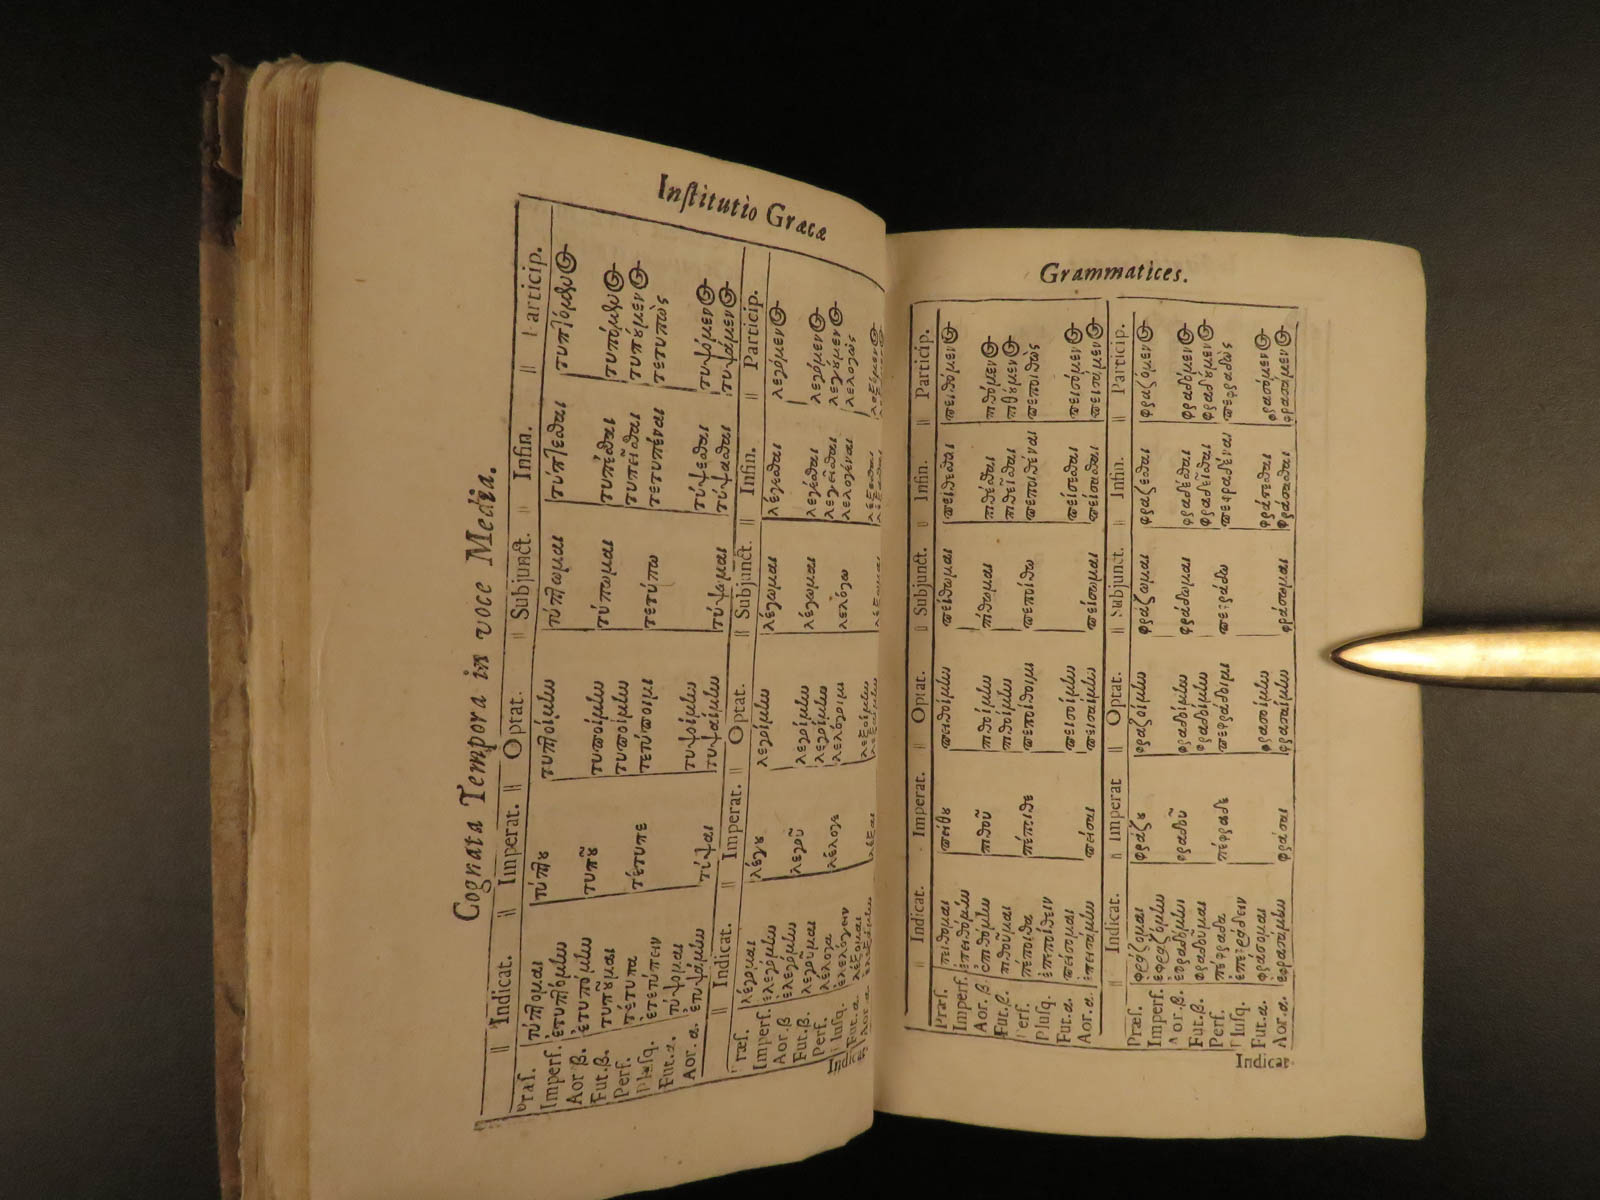 Institutio Græcæ
Cognata Tempora in voce Media.
Indicat. || Imperat. || Optat. || Subjunct. || Infin. || Particip.
Præs. τύπτομαι τύπτου τυπτοίμην τύπτωμαι τύπτεσθαι τυπτόμενος
Imperf. ἐτυπτόμην
Aor. β. ἐτυπόμην τυποῦ τυποίμην τύπωμαι τυπέσθαι τυπόμενος
Fut. β. τυποῦμαι τυποίμην τυπεῖσθαι τυπούμενος
Perf. τέτυπα τέτυπε τετύποιμι τετύπω τετυπέναι τετυπὼς
Plusq. ἐτετύπειν
Fut. α. τύψομαι τυψοίμην τύψεσθαι τυψόμενος
Aor. α. ἐτυψάμην τύψαι τυψαίμην τύψωμαι τύψασθαι τυψάμενος
|| Indicat. || Imperat. || Optat. || Subjunct. || Infin. || Particip.
Præs. λέγομαι λέγου λεγοίμην λέγωμαι λέγεσθαι λεγόμενος
Imperf. ἐλεγόμην
Aor. β ἐλεγόμην λεγοῦ λεγοίμην λέγωμαι λεγέσθαι λεγόμενος
Fut. β. λεγοῦμαι λεγοίμην λεγεῖσθαι λεγούμενος
Perf. λέλογα λέλογε λελόγοιμι λελόγω λελογέναι λελογὼς
Plusq. ἐλελόγειν
Fut. α λέξομαι λεξοίμην λέξεσθαι
Aor. α λέξαι
Grammatices.
|| Indicat. Imperat. || Optat. || Subjunct. || Infin. || Particip.
Præs. πείθομαι πείθου πειθοίμην πείθωμαι πείθεσθαι πειθόμενος
Imperf. ἐπειθόμην
Aor. β. ἐπιθόμην πιθοῦ πιθοίμην πίθωμαι πιθέσθαι πιθόμενος
Fut. β. πιθοῦμαι πιθοίμην πιθεῖσθαι πιθούμενος
Perf. πέποιθα πέποιθε πεποίθοιμι πεποίθω πεποιθέναι πεποιθὼς
Plusq. ἐπεποίθειν
Fut. α. πείσομαι πεισοίμην πείσεσθαι πεισόμενος
Aor. α. ἐπεισάμην πεῖσαι πεισαίμην πείσωμαι πείσασθαι πεισάμενος
|| Indicat. || Imperat || Optat. || Subjunct. || Infin. || Particip.
Præs. φράζομαι φράζου φραζοίμην φράζωμαι φράζεσθαι φραζόμενος
Imperf. ἐφραζόμην
Aor. β. ἐφραδόμην φραδοῦ φραδοίμην φράδωμαι φραδέσθαι φραδόμενος
Fut. β. φραδοῦμαι φραδοίμην φραδεῖσθαι φραδούμενος
Perf. πέφραδα πέφραδε πεφράδοιμι πεφράδω πεφραδέναι πεφραδὼς
Plusq. ἐπεφράδειν
Fut. α. φράσομαι φρασοίμην φράσεσθαι φρασόμενος
Aor. α. ἐφρασάμην φράσαι φρασαίμην φράσωμαι φράσασθαι φρασάμενος
Indicat